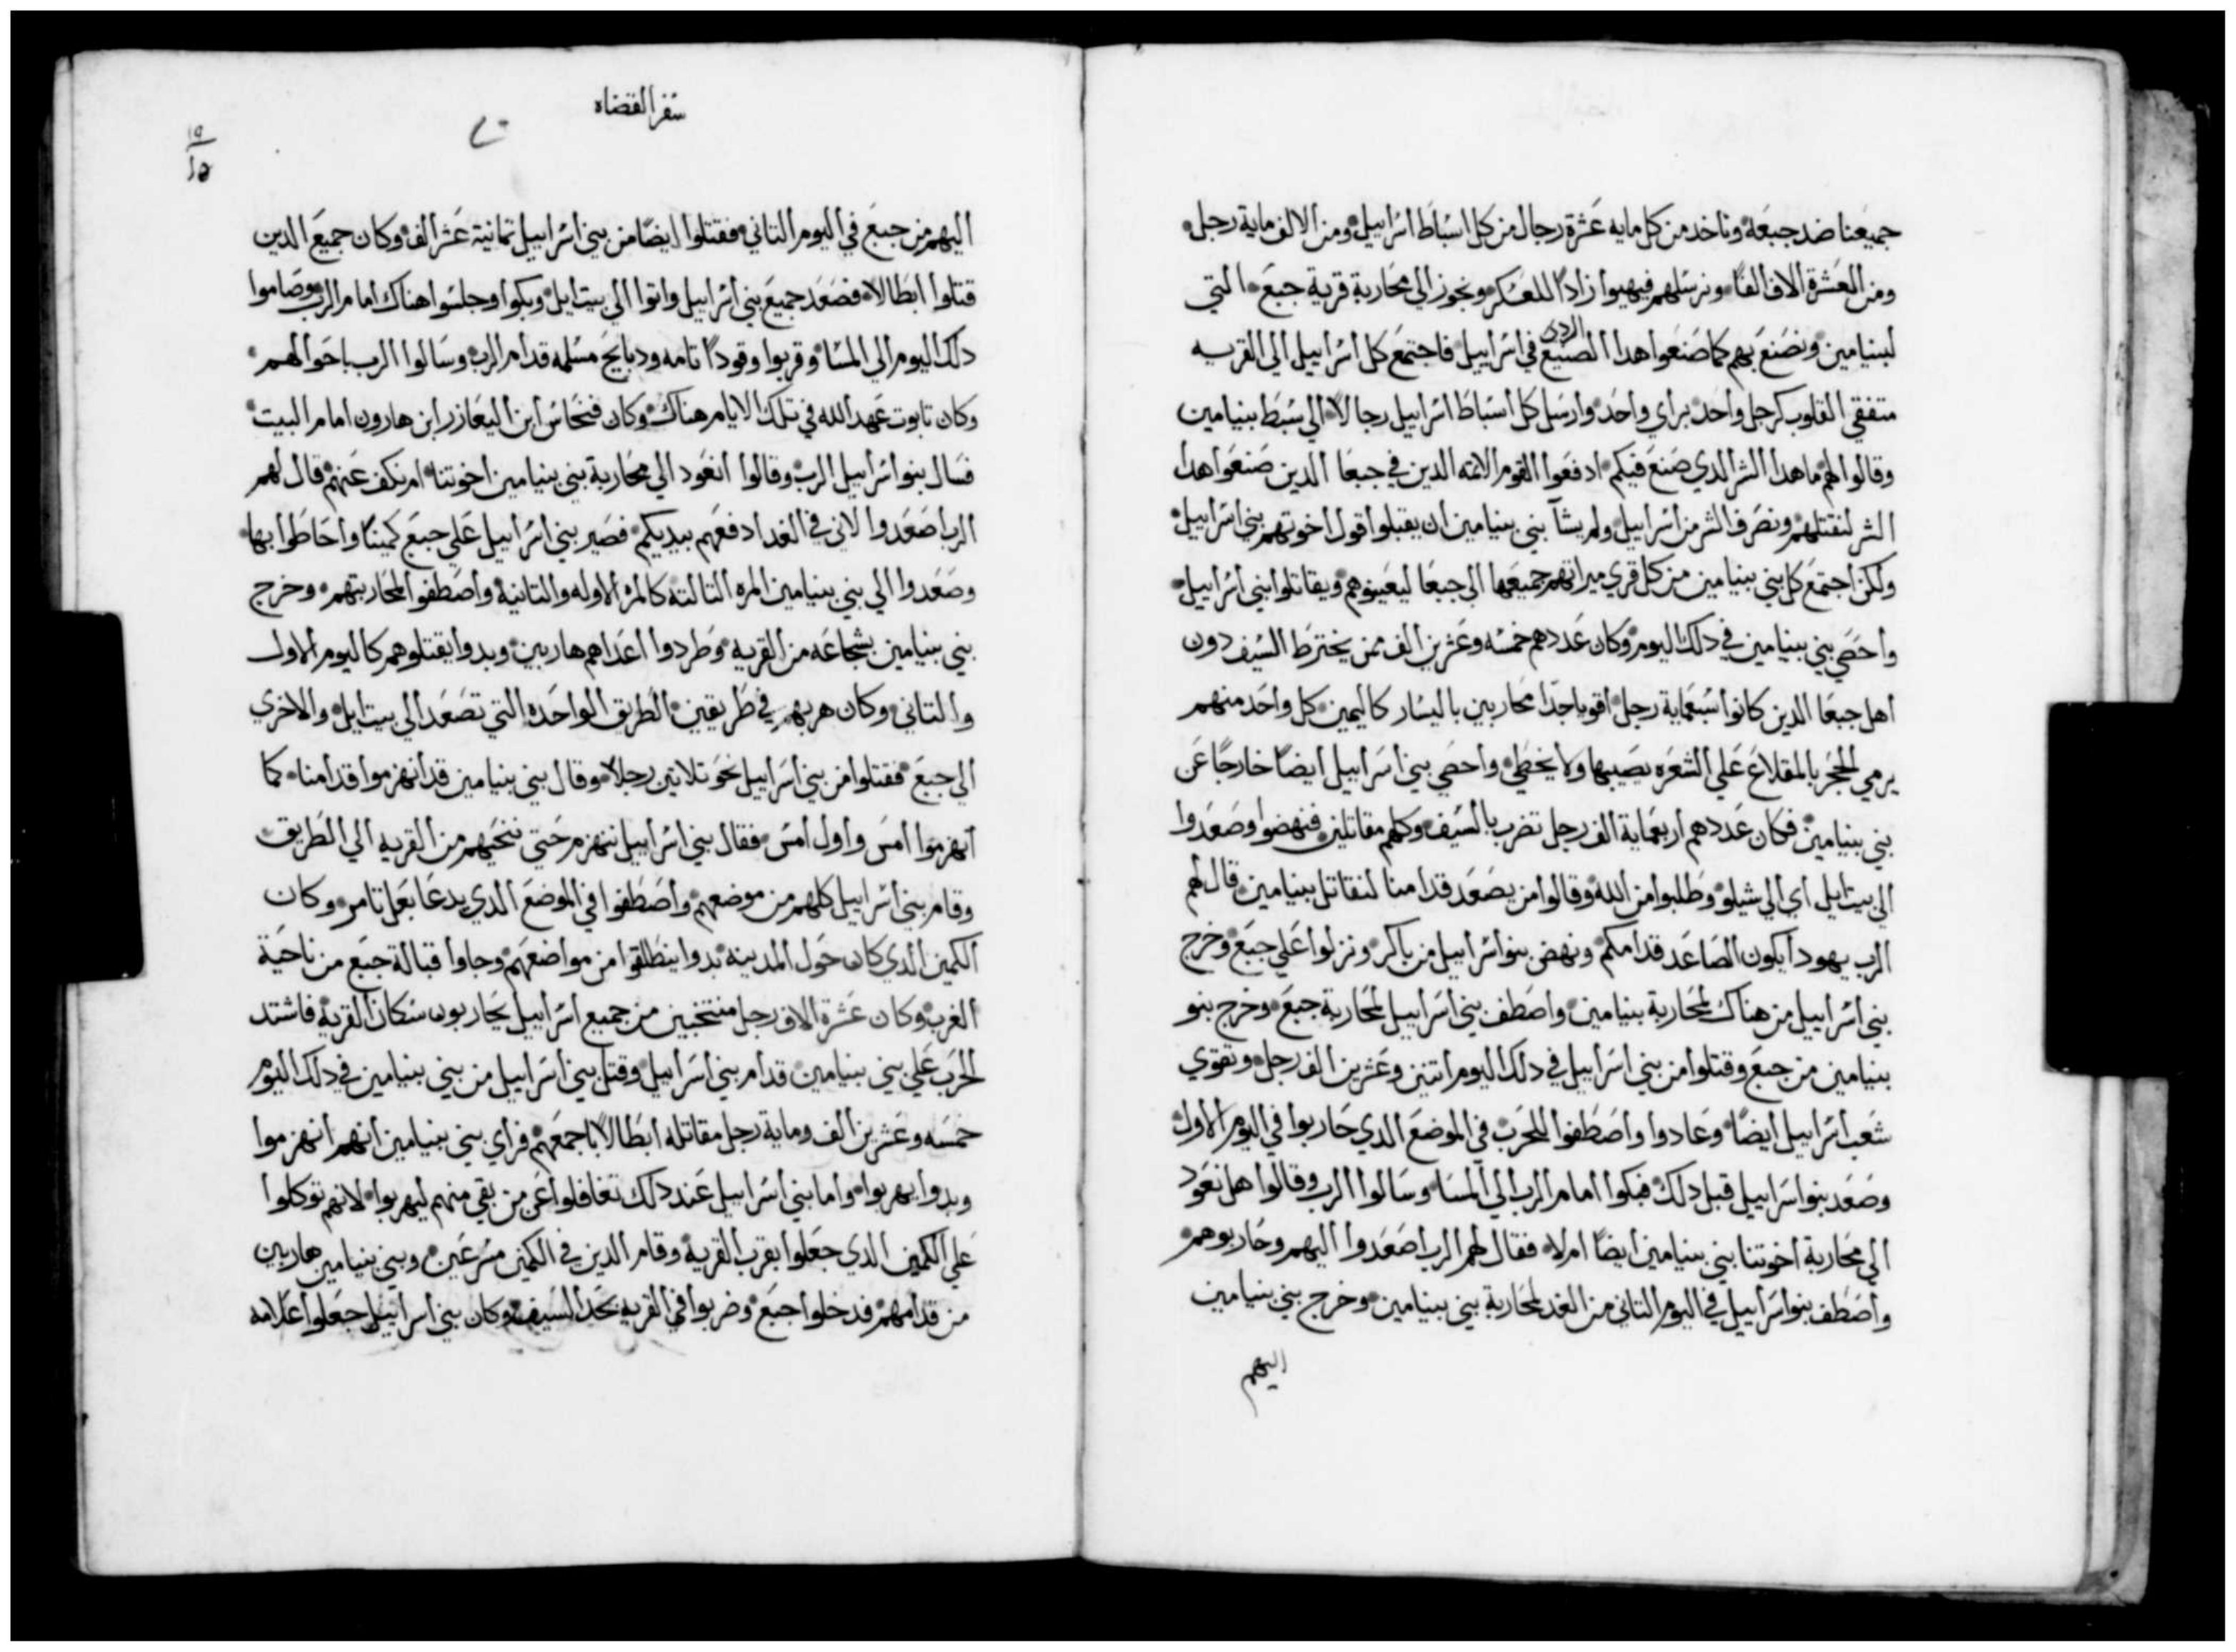 جميعنا ضد جبعه وناخد من كل مايه عشرة رجال من كل اسباط اسراييل ومن الالف ماية رجل
ومن العشرة الاف الفًا ونرسلهم فيهيوا زادًا للعسكر ونجوز الي محاربة قرية جبع التي
لبنيامين ونصنع بهم كما صنعوا هدا الصنيع الردي في اسراييل فاجتمع كل اسراييل الي القريه
متفقي القلوب كرجل واحد براي واحد وارسل كل اسباط اسراييل رجالًا الي سبط بنيامين
وقالوا لهم ما هدا الشر الدي صنع فيكم ادفعوا القوم الاتمه الدين في جبعا الدين صنعوا هدا
الشر لنقتلهم ونصرف الشر من اسراييل ولم يشآ بني بنيامين ان يقبلوا قول اخوتهم بني اسراييل
ولكن اجتمع كل بني بنيامين من كل قري ميراتهم جميعها الي جبعا ليعينوهم ويقاتلوا بني اسراييل
واحصي بني بنيامين في دلك اليوم وكان عددهم خمسه وعشرين الف ممن يخترط السيف دون
اهل جبعا الدين كانوا سبعماية رجل اقويا جدًا محاربين باليسار كاليمين كل واحد منهم
يرمي الحجر بالمقلاع علي الشعره يصيبها ولا يخطي واحصي بني اسراييل ايضًا خارجًا عن
بني بنيامين فكان عددهم اربعماية الف رجل تضرب بالسيف وكلهم مقاتلين فنهضوا وصعدوا
الي بيت ايل اي الي شيلو وطلبوا من الله وقالوا من يصعد قدامنا لنقاتل بنيامين قال لهم
الرب يهودا يكون الصاعد قدامكم ونهض بنوا اسراييل من باكر ونزلوا علي جبع وخرج
بني اسراييل من هناك لمحاربة بنيامين واصطف بني اسراييل لمحاربة جبع وخرج بنو
بنيامين من جبع وقتلوا من بني اسراييل في دلك اليوم اتنين وعشرين الف رجل وتقوي
شعب اسراييل ايضًا وعادوا واصطفوا للحرب في الموضع الدي حاربوا في اليوم الاول
وصعد بنوا اسراييل قبل دلك فبكوا امام الرب الي المسا وسالوا الرب وقالوا هل نعود
الي محاربة اخوتنا بني بنيامين ايضًا ام لا فقال لهم الرب اصعدوا اليهم وحاربوهم
واصطف بنوا اسراييل في اليوم التاني من الغد لمحاربة بني بينيامين وخرج بني بنيامين
اليهم
سفر القضاه
اليهم من جبع في اليوم التاني فقتلوا ايضًا من بني اسراييل تمانية عشر الف وكان جميع الدين
قتلوا ابطالا فصعد جميع بني اسراييل واتوا الي بيت ايل وبكوا وجلسوا هناك امام الرب وصاموا
دلك اليوم الي المسا وقربوا وقودًا تامه ودبايح مسلمه قدام الرب وسالوا الرب باحوالهم
وكان تابوت عهد الله في تلك الايام هناك وكان فنحاس ابن اليعازر ابن هارون امام البيت
فسال بنوا اسراييل الرب وقالوا انعود الي محاربة بني بنيامين اخوتنا ام نكف عنهم قال لهم
الرب اصعدوا لاني في الغد ادفعهم بيديكم فصير بني اسراييل علي جبع كمينًا واحاطوا بها
وصعدوا الي بني بنيامين المره التالته كالمره الاوله والتانيه واصطفوا لمحاربتهم وخرج
بني بنيامين بشجاعه من القريه وطردوا اعداهم هاربين وبدوا يقتلوهم كاليوم الاول
والتاني وكان هربهم في طريقين الطريق الواحده التي تصعد الي بيت ايل والاخري
الي جبع فقتلوا من بني اسراييل نحو تلاتين رجلا وقال بني بنيامين قد انهزموا قدامنا كما
انهزموا امس واول امس فقال بني اسراييل ننهزم حتي ننحيهم من القريه الي الطريق
وقام بني اسراييل كلهم من موضعهم واصطفوا في الموضع الدي يدعا بعل تامر وكان
الكمين الدي كان حول المدينه بدوا ينطلقوا من مواضعهم وجاوا قبالة جبع من ناحية
الغرب وكان عشرة الاف رجل منتخبين من جميع اسراييل يحاربون سكان القرية فاشتد
الحرب علي بني بنيامين قدام بني اسراييل وقتل بني اسراييل من بني بنيامين في دلك اليوم
خمسه وعشرين الف وماية رجل مقاتله ابطالًا باجمعهم فراي بني بنيامين انهم انهزموا
وبدوا يهربوا واما بني اسراييل عند دلك تغافلوا عن من بقي منهم ليهربوا لانهم توكلوا
علي الكمين الدي جعلوا بقرب القرية وقام الدين في الكمين مسرعين وبني بنيامين هاربين
من قدامهم فدخلوا جبع وضربوا في القريه بحد السيف وكان بني اسراييل جعلوا علامه